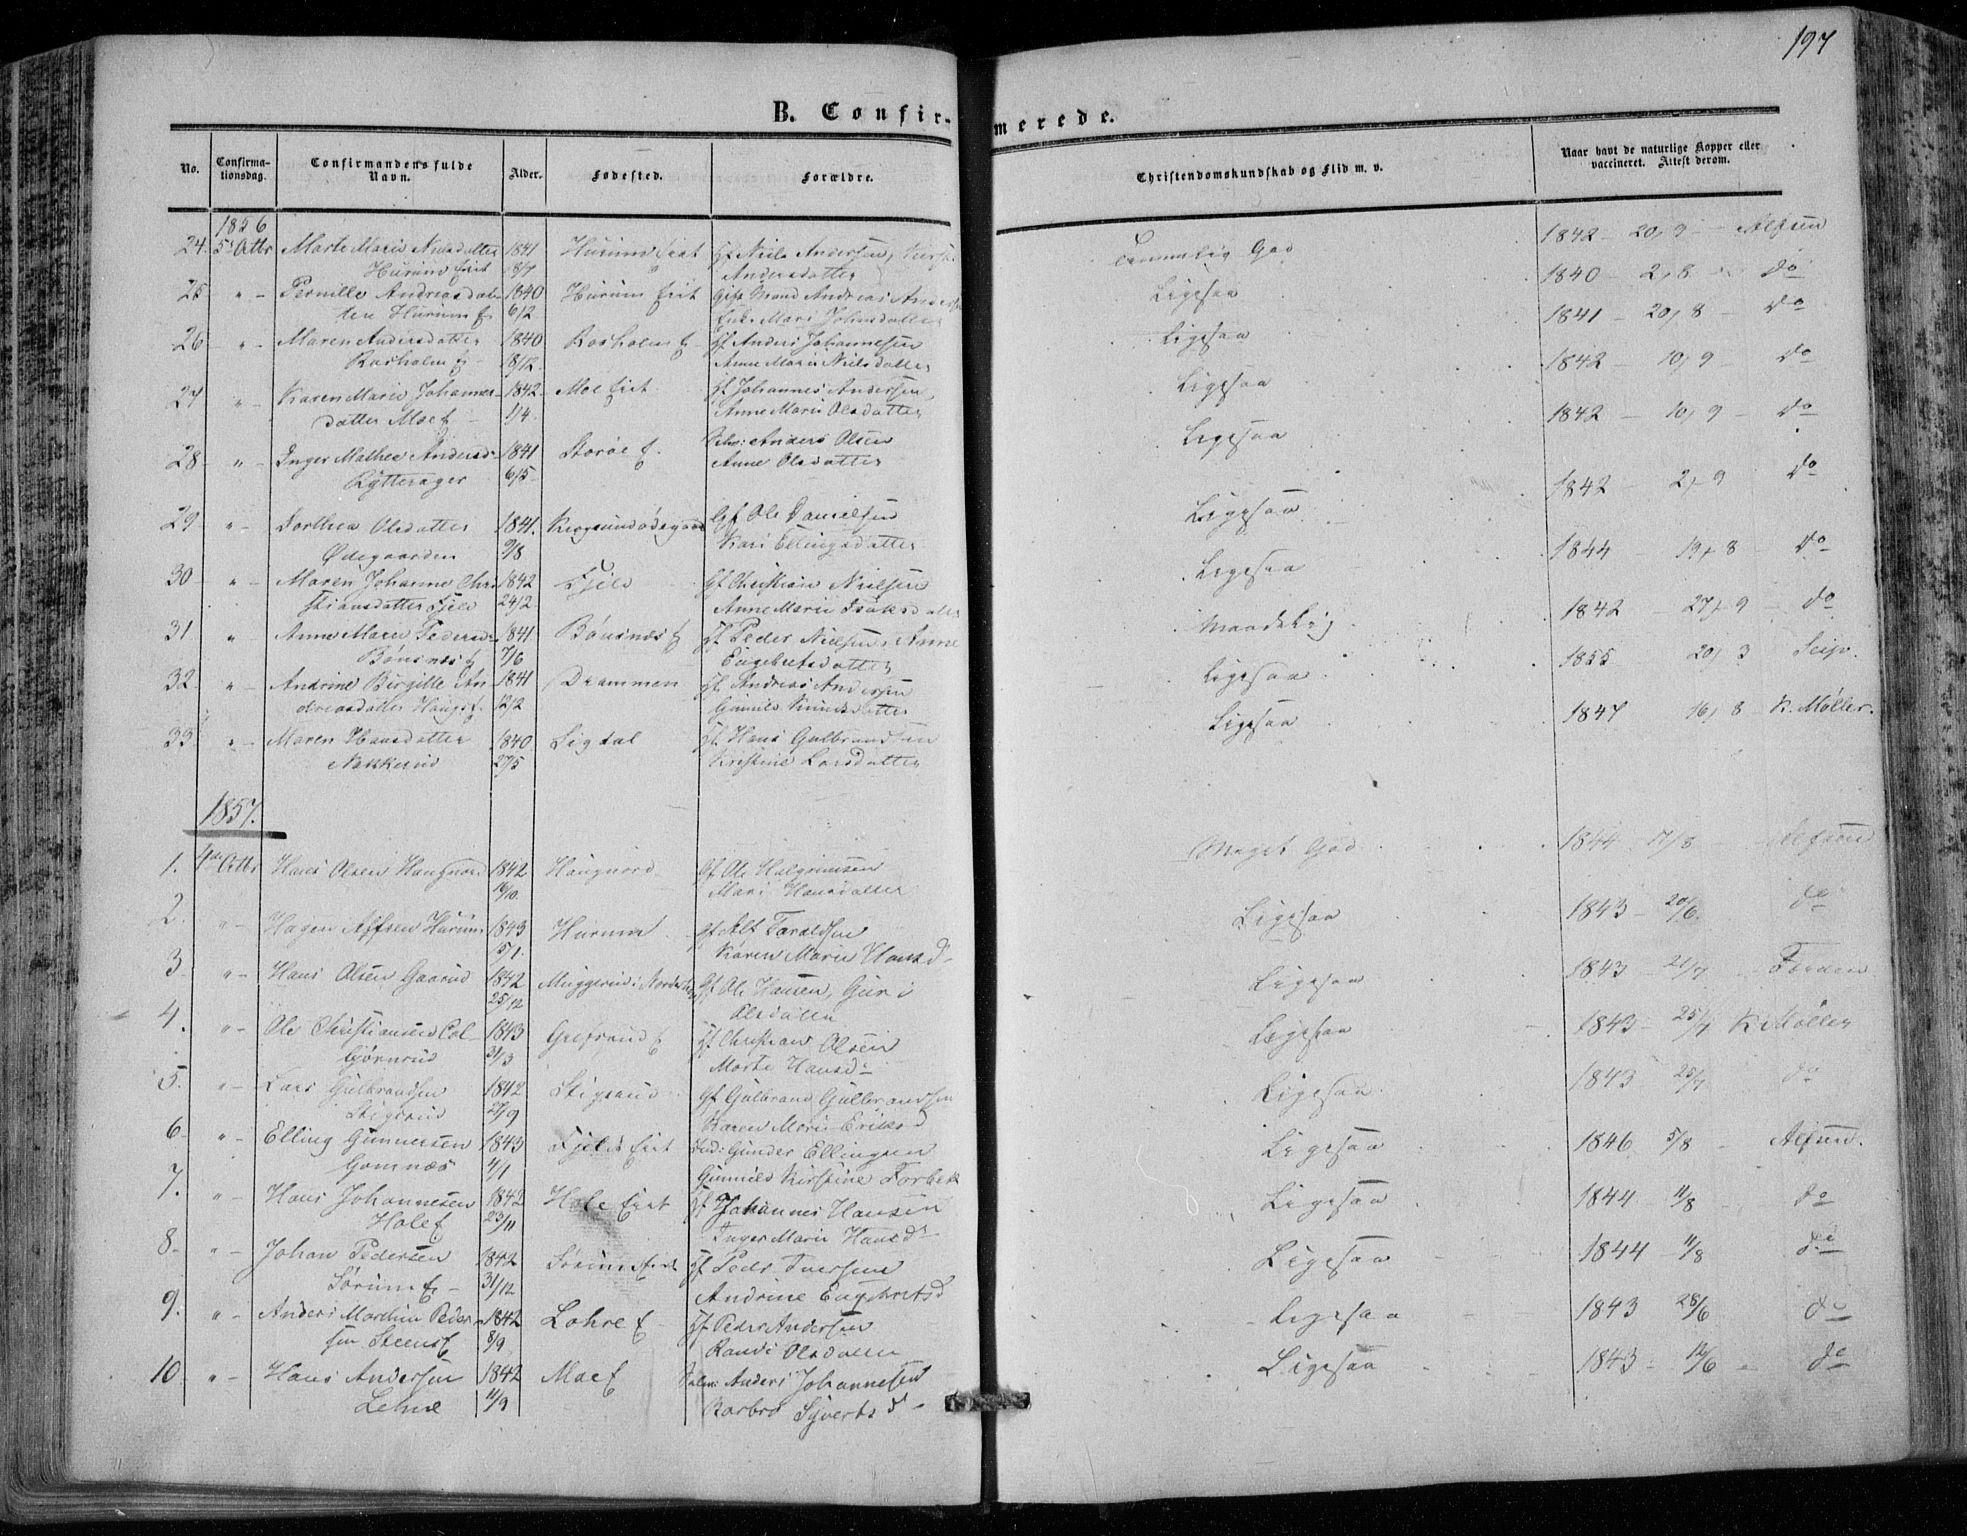 197
B. Confirmerede.
No. Confirmationsdag. Confirmandens fulde Navn. Alder. Fødested. Forældre. Christendomskundskab og Flid m. v. Naar havt de naturlige Kopper eller vaccineret. Attest derom.
1856
24. 5t Octbr Marte Marie Nielsdatter 1841 Hurum Eiet Gf Niels Andersen, Temmelig God 1842 - 20/9 - Alfsen
Hurum Eiet 18/7 Andersdatter
25 " - Pernille Andreasdat- 1840 Hurum Eiet Gift Mand Andreas Ligesaa 1840 - 2/8 do
ter Hurum E 6/2 Mari Johnsdatter
26 " - Maren Andersdatter 1840 Rosholm E Gf Anders Johannesen Ligesaa 1841 - 20/8 - do
Rosholm E - 18/12 Anne Marie Nielsdatter
27 " - Karen Marie Johannes- 1842 Moe Eiet Gf Johannes Andersen, Ligesaa 1842 - 10/9 - do
datter Moe E - 1/4. Anne Marie Olsdatter
28 - " - Inger Mathea Andersd- 1841 Storøe E. Anders Olsen Ligesaa 1842 - 10/9 - do
Rytterager 6/5 Anne Olsdatter
29 " - Dorthea Olsdatter 1841. Krogsund ødegaard Gf Ole Danielsen Ligesaa 1842 - 2/9 do
Ødegaarden 9/8 Kari Ellingsdatter
30 " - Maren Johanne Chri- 1842 Fjeld Gf Christian Nielsen Ligesaa 1844 19/8 - do
stiansdatter Fjeld 24/2 Anne Marie Isaksdatter
31 " Anne Maren Pedersd- 1841 Bønsnæs E Gf Peder Nielsen, Anne Maadelig 1842 - 27/9 - do
Bønsnæs E 7/6 Engebretsdatter
32 " - Andrine Birgitte An- 1841 Drammen Gf Andreas Andersen Ligesaa 1855 20/3 Seip.
dreasdatter Haugs E. 12/2 Gunnild Knudsdatter
33 " - Maren Hansdatter 1840 Sigdal Gf. Hans Gulbrandsen Ligesaa 1847 16/8 - K. Møller.
Nakkerud 27/5 Kirstine Larsdatter
1857.
1. 4de Octbr Hans Olsen Haugnord 1842 Haugnord Gf Ole Halgrimsen Meget God 1844 - 17/8 - Alfsen
16/10. Mari Hansdatter
2. " - Hagen Alfsen Hurum 1843 Hurum Gf Alf Taraldsen Ligesaa 1843 - 20/6. do
15/1. Karen Marie Hansd-
3. " - Hans Olsen Gaarud 1842 Muggerud i Gf Ole Hansen, Guri Ligesaa 1843 - 21/7 - Forden
25/12 Olsdatter
4. " - Ole Christiansen 1843 Grefsrud E Gf Christian Olsen Ligesaa 1843 - 25/7 K. Møller
Gjørnrud 31/3 Marte Hansd-
5. " - Lars Gulbrandsen 1842 Stigsrud Gf Gulbrand Gulbrandsen Ligesaa 1843 - 25/7 do
Stigsrud 27/9 Karen Marie Eriksd
6. " - Elling Gunnersen 1843 Fjeld Eiet Gunder Ellingsen Ligesaa 1846 5/8 - Alfsen.
Gomnæs 4/1 Gunnild Kirstine
7. " - Hans Johannesen 1842 Hole Eiet Gf Johannes Hansen Ligesaa 1844 - 11/8 do
Hole E 23/11 Inger Marie Hansd-
8. " - Johan Pedersen 1842 Sørum Eiet Gf Peder Iversen Ligesaa 1844 - 11/8 do
Sørum E - 31/12 Andrine Engebretsd
9. " - Anders Martin Peder- 1842 Lohre E - Gf Peder Andersen Ligesaa 1843 28/6 do
sen Steens E 8/9 Randi Olsdatter
10 " - Hans Andersen 1842 Moe E Anders Johannesen Ligesaa 1843 - 12/6 - do
Lehne 11/9 Barbro Syvertsd -